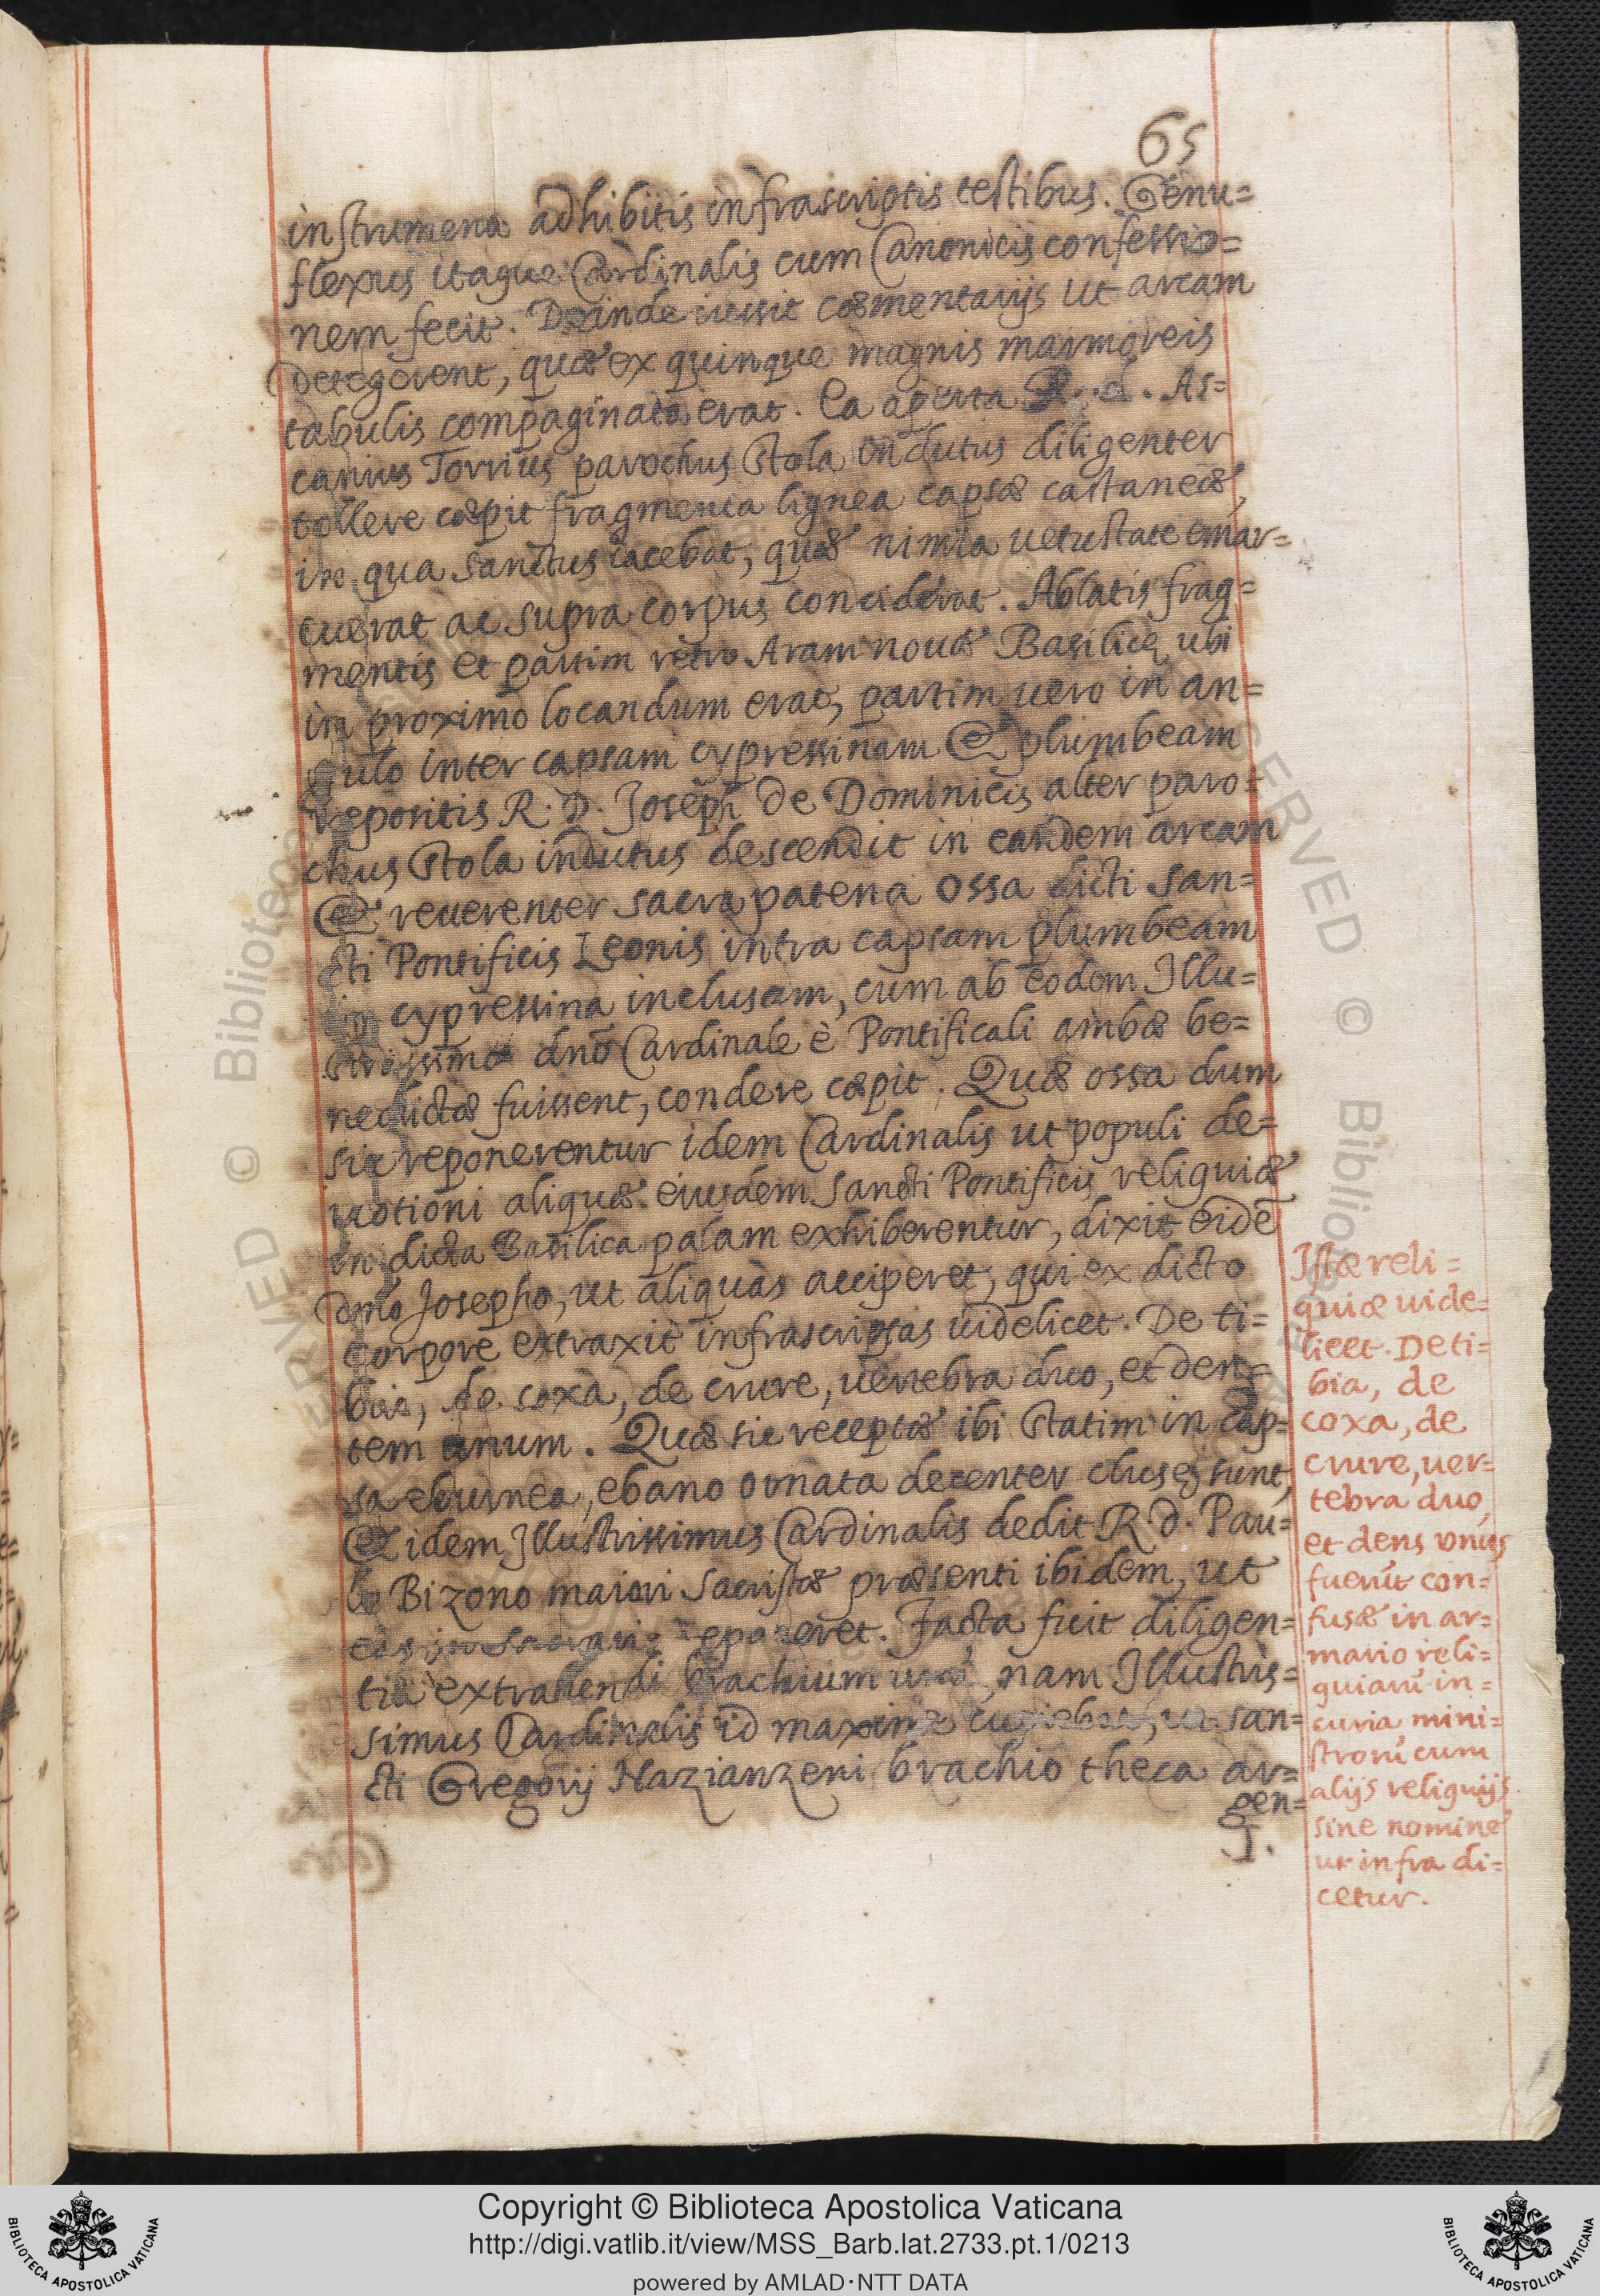 65
instrumenta adhibitis infrascriptis testibus. Genu=
flexus itaque Cardinalis cum Canonicis confessio=
nem fecit. Deinde iussit cæmentarijs ut arcam
detegerent, quæ ex quinque magnis marmoreis
tabulis compaginata erat. Ea aperta R. d. As=
canius Torrius parochus stola indutus diligenter
tollere cæpit fragmenta lignea capsæ castaneæ,
in qua sanctus iacebat, quæ nimia uetustate emar=
cuerat ac supra corpus conciderat. Ablatis frag=
mentis et partim retro Aram nouæ Basilicę ubi
in proximo locandum erat, partim uero in an=
gulo inter capsam cypressinam & plumbeam
repositis R. D. Joseph de Dominicis alter paro=
chus stola indutus descendit in eandem arcam
& reuerenter sacra patena ossa dicti san=
cti Pontificis Leonis intra capsam plumbeam
in cypressina inclusam, cum ab eodem Illu=
strissimo dño Cardinale è Pontificali ambæ be=
nedictæ fuissent, condere cæpit. Quæ ossa dum
sic reponerentur idem Cardinalis ut populi de=
uotioni aliquæ eiusdem sancti Pontificis reliquiæ
in dicta Basilica palam exhiberentur, dixit eidē
dño Josepho, ut aliquas acciperet, qui ex dicto
corpore extraxit infrascriptas uidelicet. De ti=
bia, de coxa, de crure, uertebra duo, et den=
tem unum. Quæ sic receptæ ibi statim in cap=
sa eburnea, ebano ornata decenter clusę sunt,
& idem Illustrissimus Cardinalis dedit R. d. Pau=
lo Bizono maiori sacristæ præsenti ibidem, ut
eas in sacrario reponeret. Facta fuit diligen=
tia extrahendi brachium unū, nam Illustris=
simus Cardinalis id maxime cupiebat, ut san=
cti Gregorij Nazianzeni brachio theca ar=
gen=
J.
Istæ reli=
quiæ uide=
licet. De ti=
bia, de
coxa, de
crure, uer=
tebra duo,
et dens unus
fuerūt con=
fusæ in ar=
mario reli=
quiarū in=
curia mini=
strorū cum
alijs reliquijs
sine nomine
ut infra di=
cetur.
Copyright © Biblioteca Apostolica Vaticana
http://digi.vatlib.it/view/MSS_Barb.lat.2733.pt.1/0213
powered by AMLAD·NTT DATA
BIBLIOTECA APOSTOLICA VATICANA
BIBLIOTECA APOSTOLICA VATICANA